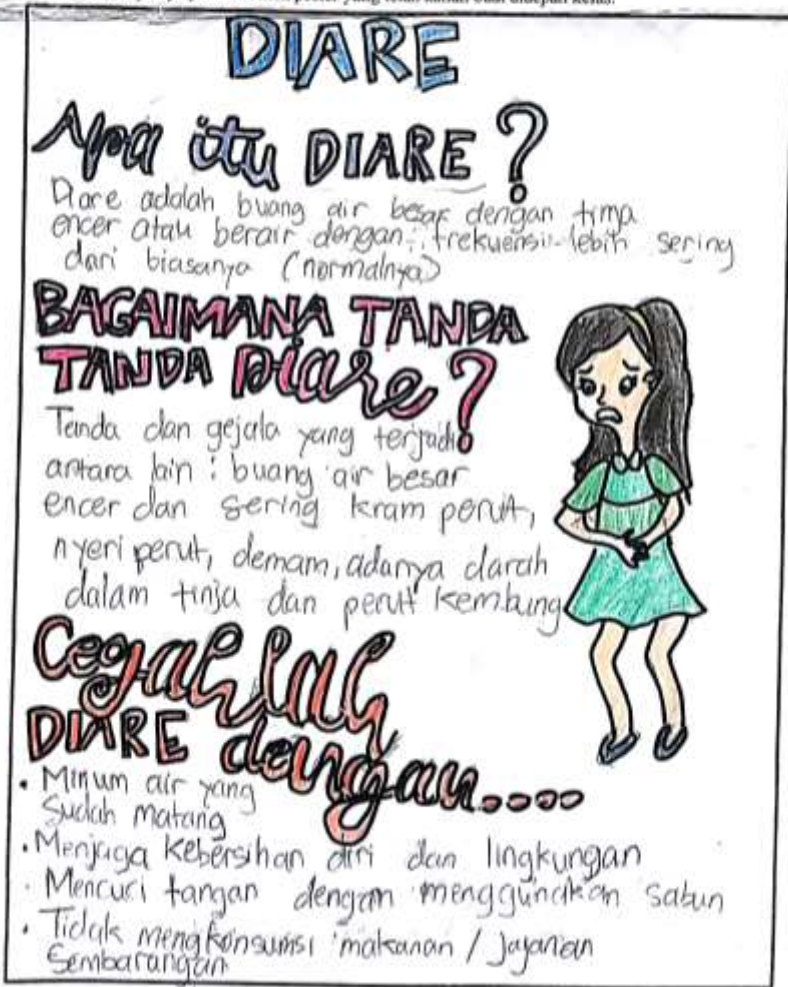 poster yang telah kalian buat didepan kelas.
DIARE
Apa itu DIARE?
Diare adalah buang air besar dengan tinja
encer atau berair dengan frekuensi lebih sering
dari biasanya (normalnya)
BAGAIMANA TANDA
TANDA Diare?
Tanda dan gejala yang terjadi
antara lain : buang air besar
encer dan sering kram perut,
nyeri perut, demam, adanya darah
dalam tinja dan perut kembung
Cegahlah
DIARE dengan....
• Minum air yang
sudah matang
• Menjaga kebersihan diri dan lingkungan
• Mencuci tangan dengan menggunakan sabun
• Tidak mengkonsumsi makanan / jajanan
Sembarangan